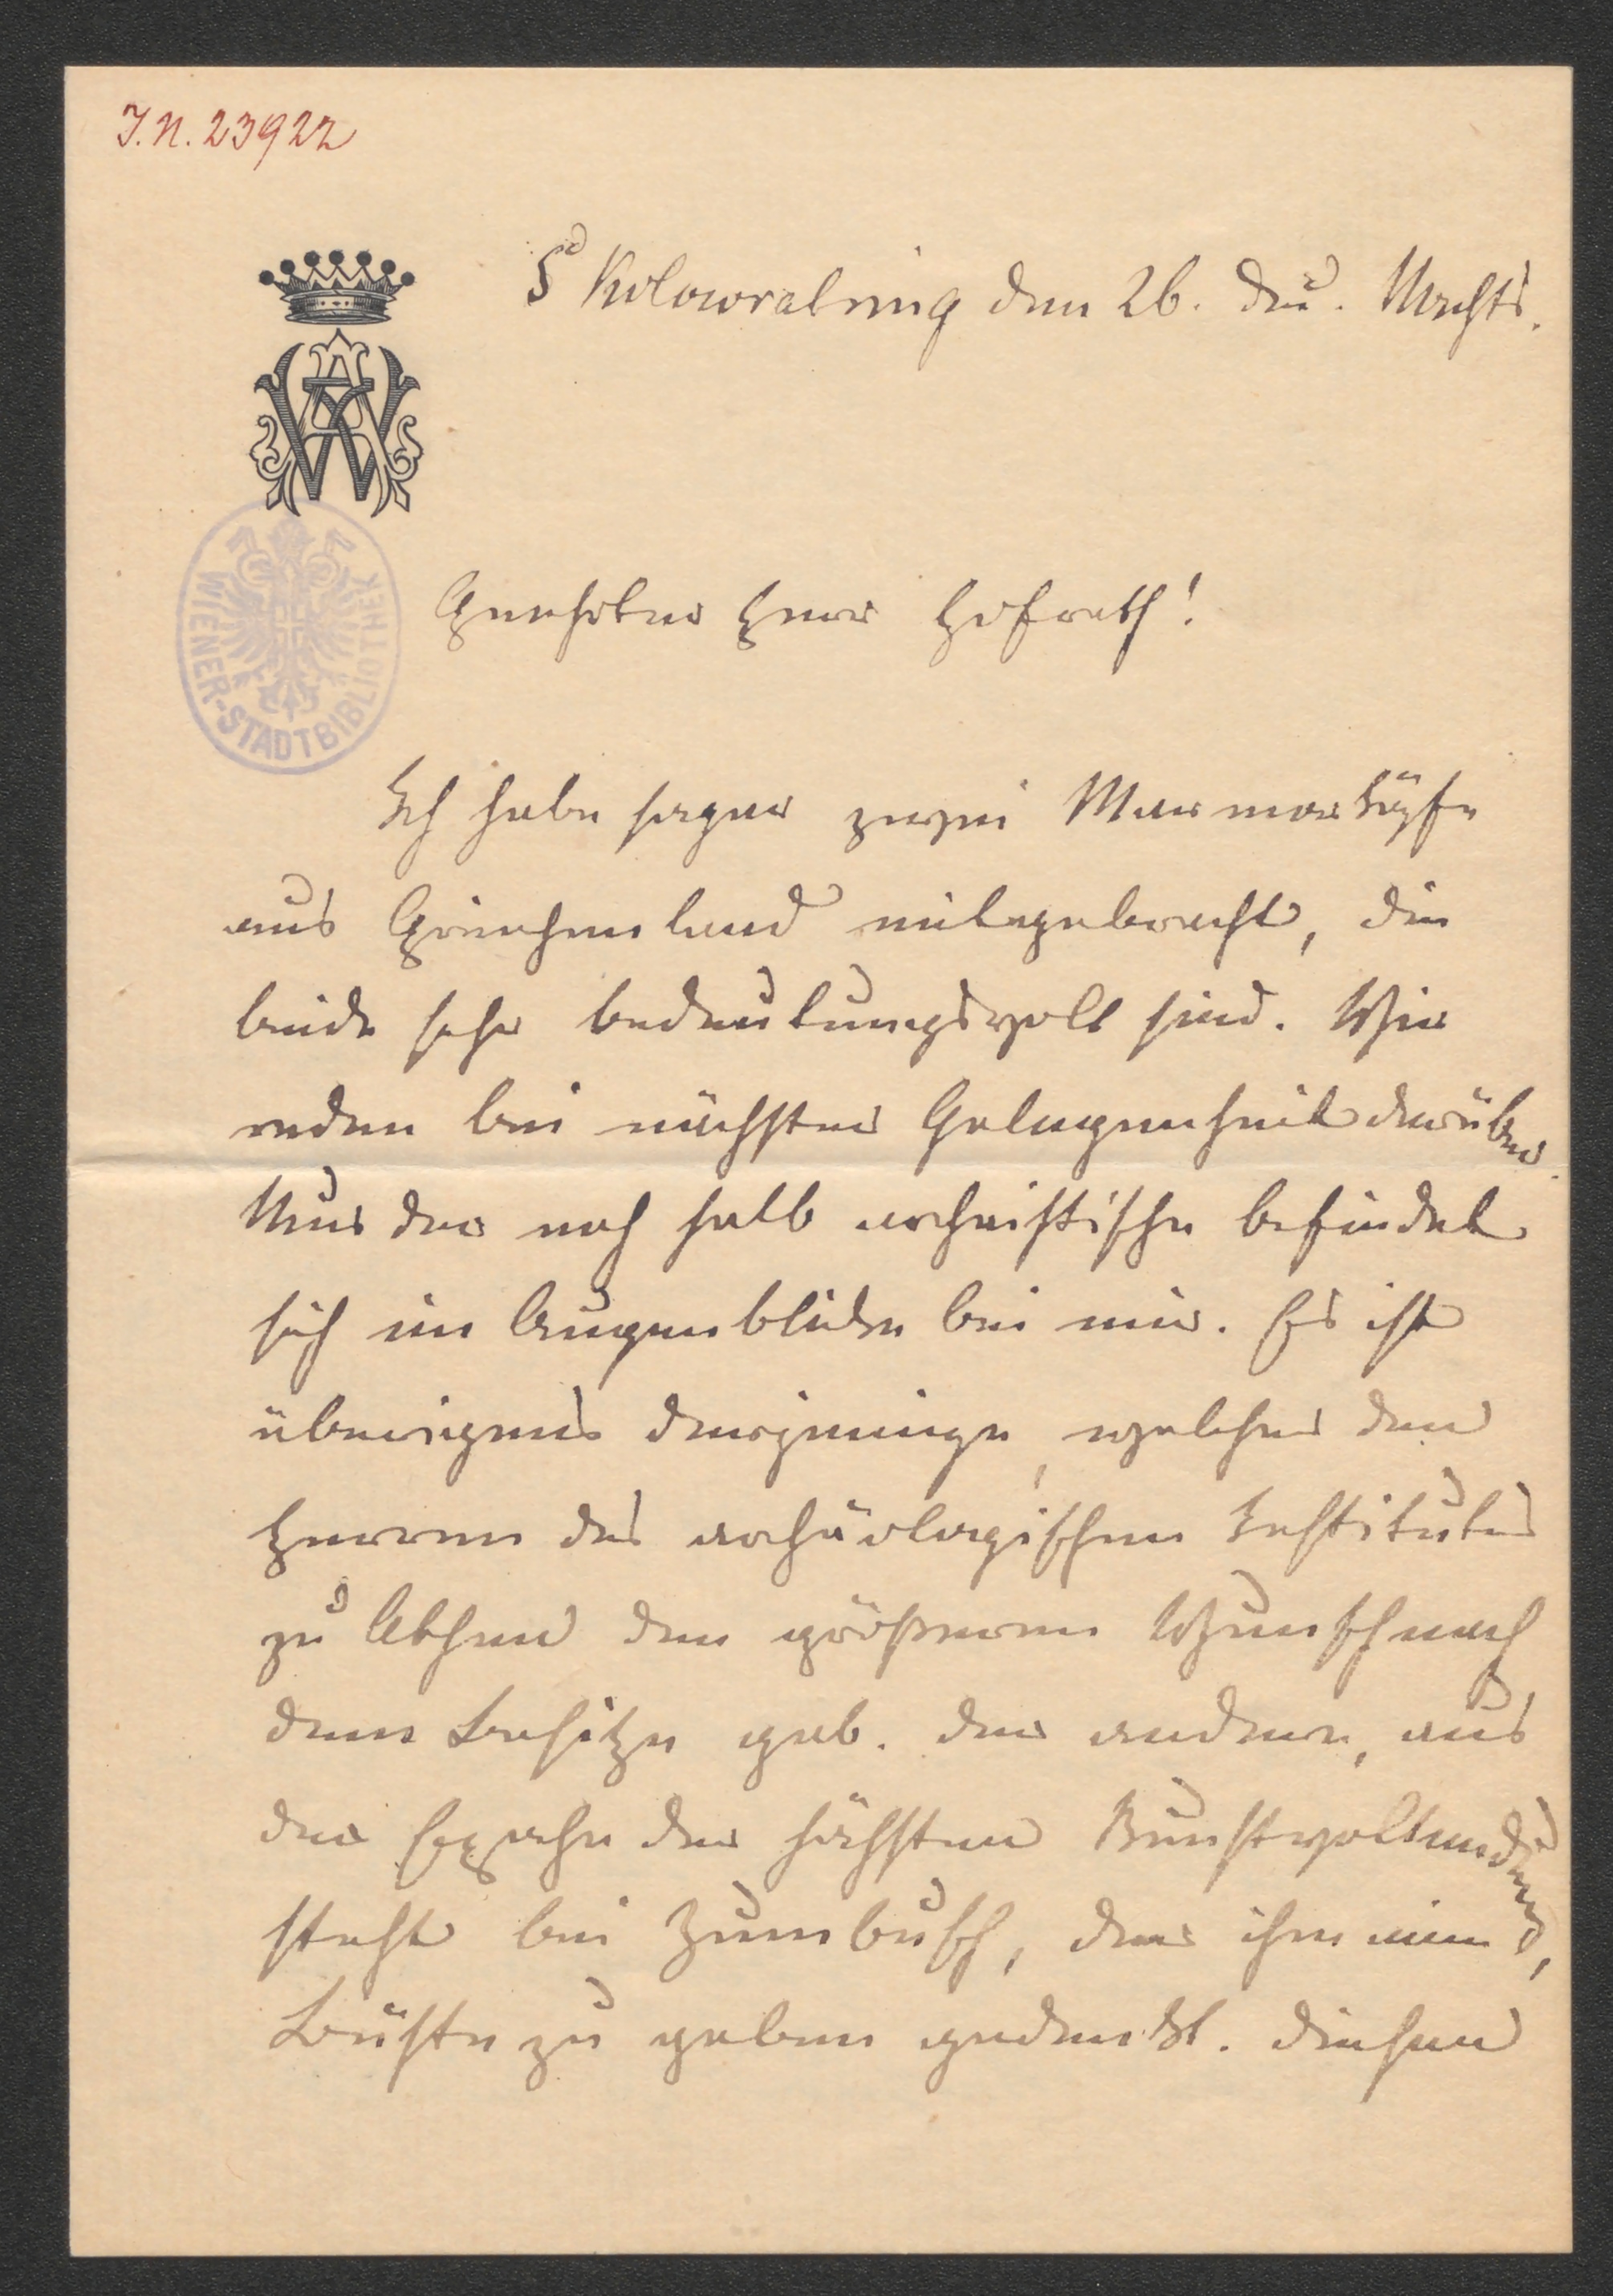 I.N. 23922
5 Kolowratring den 26. Dez. Nachts.
WIENER-STADTBIBLIOTHEK
Geehrter Herr Hofrath!
Ich habe sogar zwei Marmorköpfe
aus Griechenland mitgebracht, die
beide sehr bedeutungsvoll sind. Wir
reden bei nächster Gelegenheit darüber.
Nur der noch halb archaistische befindet
sich im Augenblicke bei mir. Es ist
überigens derjenige, welcher den
Herren des archäologischen Institutes
zu Athen den größeren Wunsch nach
dem Besitze gab. Der andere, aus
der Epoche der höchsten Kunstvollendung,
steht bei Zumbusch, der ihm eine
Büste zu geben gedenkt. Diesen